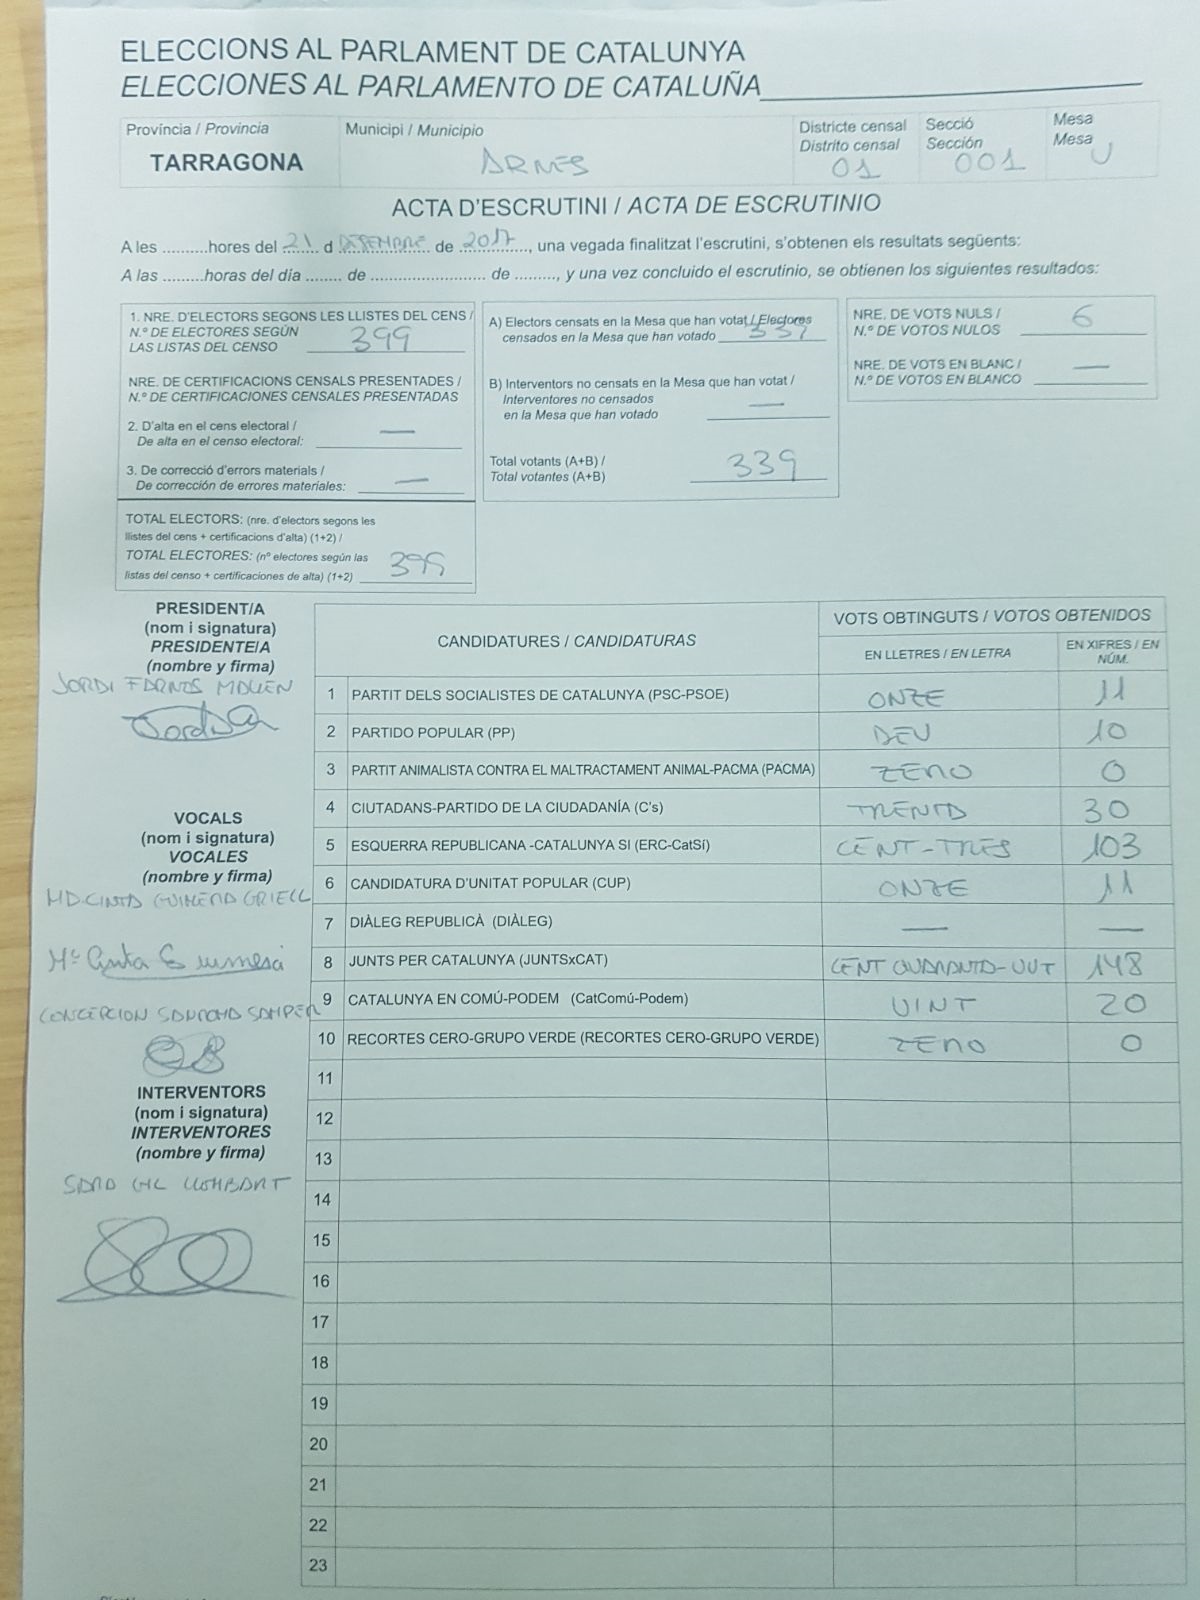 ELECCIONS AL PARLAMENT DE CATALUNYA
ELECCIONES AL PARLAMENTO DE CATALUÑA
Província / Provincia
TARRAGONA
Municipi / Municipio
ARNES
Districte censal
Distrito censal
01
Secció
Sección
001
Mesa
Mesa U
ACTA D'ESCRUTINI / ACTA DE ESCRUTINIO
A les ..........hores del 21 d DESEMBRE de 2017, una vegada finalitzat l'escrutini, s'obtenen els resultats següents:
A las .........horas del día ........ de ........................ de ........., y una vez concluido el escrutinio, se obtienen los siguientes resultados:
1. NRE. D'ELECTORS SEGONS LES LLISTES DEL CENS /
N.º DE ELECTORES SEGÚN
LAS LISTAS DEL CENSO 399
NRE. DE CERTIFICACIONS CENSALS PRESENTADES /
N.º DE CERTIFICACIONES CENSALES PRESENTADAS
2. D'alta en el cens electoral / —
De alta en el censo electoral:
3. De correcció d'errors materials / —
De corrección de errores materiales:
TOTAL ELECTORS: (nre. d'electors segons les
llistes del cens + certificacions d'alta) (1+2) /
TOTAL ELECTORES: (nº electores según las
listas del censo + certificaciones de alta) (1+2) 399
A) Electors censats en la Mesa que han votat / Electores
censados en la Mesa que han votado 339
B) Interventors no censats en la Mesa que han votat /
Interventores no censados —
en la Mesa que han votado
Total votants (A+B) /
Total votantes (A+B) 339
NRE. DE VOTS NULS /
N.º DE VOTOS NULOS 6
NRE. DE VOTS EN BLANC / —
N.º DE VOTOS EN BLANCO
PRESIDENT/A
(nom i signatura)
PRESIDENTE/A
(nombre y firma)
JORDI FARNOS
VOCALS
(nom i signatura)
VOCALES
(nombre y firma)
Mª Cinta
CONCEPCION SAMPER
INTERVENTORS
(nom i signatura)
INTERVENTORES
(nombre y firma)
SARA GIL LLOMBART
CANDIDATURES / CANDIDATURAS
VOTS OBTINGUTS / VOTOS OBTENIDOS
EN LLETRES / EN LETRA
EN XIFRES / EN NÚM.
1 PARTIT DELS SOCIALISTES DE CATALUNYA (PSC-PSOE) ONZE 11
2 PARTIDO POPULAR (PP) DEU 10
3 PARTIT ANIMALISTA CONTRA EL MALTRACTAMENT ANIMAL-PACMA (PACMA) ZERO 0
4 CIUTADANS-PARTIDO DE LA CIUDADANÍA (C's) TRENTA 30
5 ESQUERRA REPUBLICANA -CATALUNYA SI (ERC-CatSí) CENT-TRES 103
6 CANDIDATURA D'UNITAT POPULAR (CUP) ONZE 11
7 DIÀLEG REPUBLICÀ (DIÀLEG) — —
8 JUNTS PER CATALUNYA (JUNTSxCAT) CENT QUARANTA-VUT 148
9 CATALUNYA EN COMÚ-PODEM (CatComú-Podem) VINT 20
10 RECORTES CERO-GRUPO VERDE (RECORTES CERO-GRUPO VERDE) ZERO 0
11
12
13
14
15
16
17
18
19
20
21
22
23